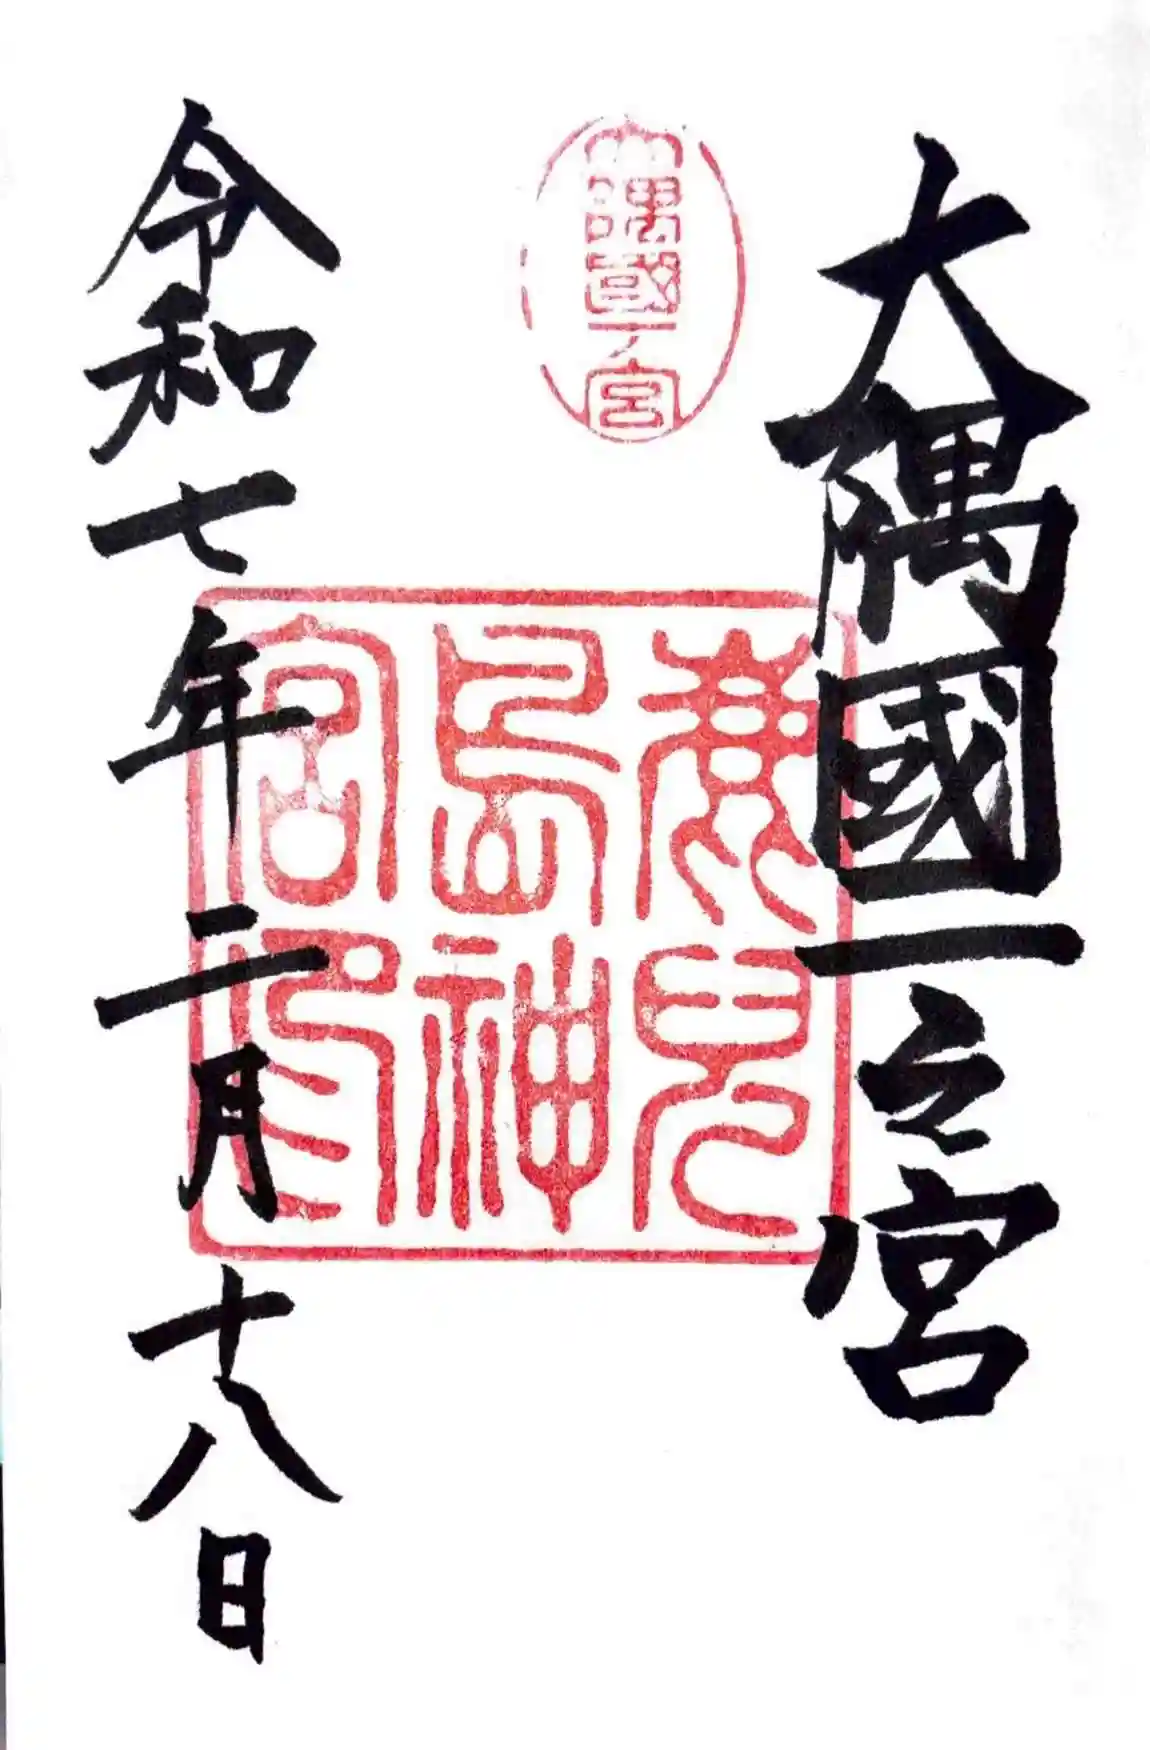 大隅國一之宮
大隅國一ノ宮
鹿兒
島神
宮印
令和七年二月十八日